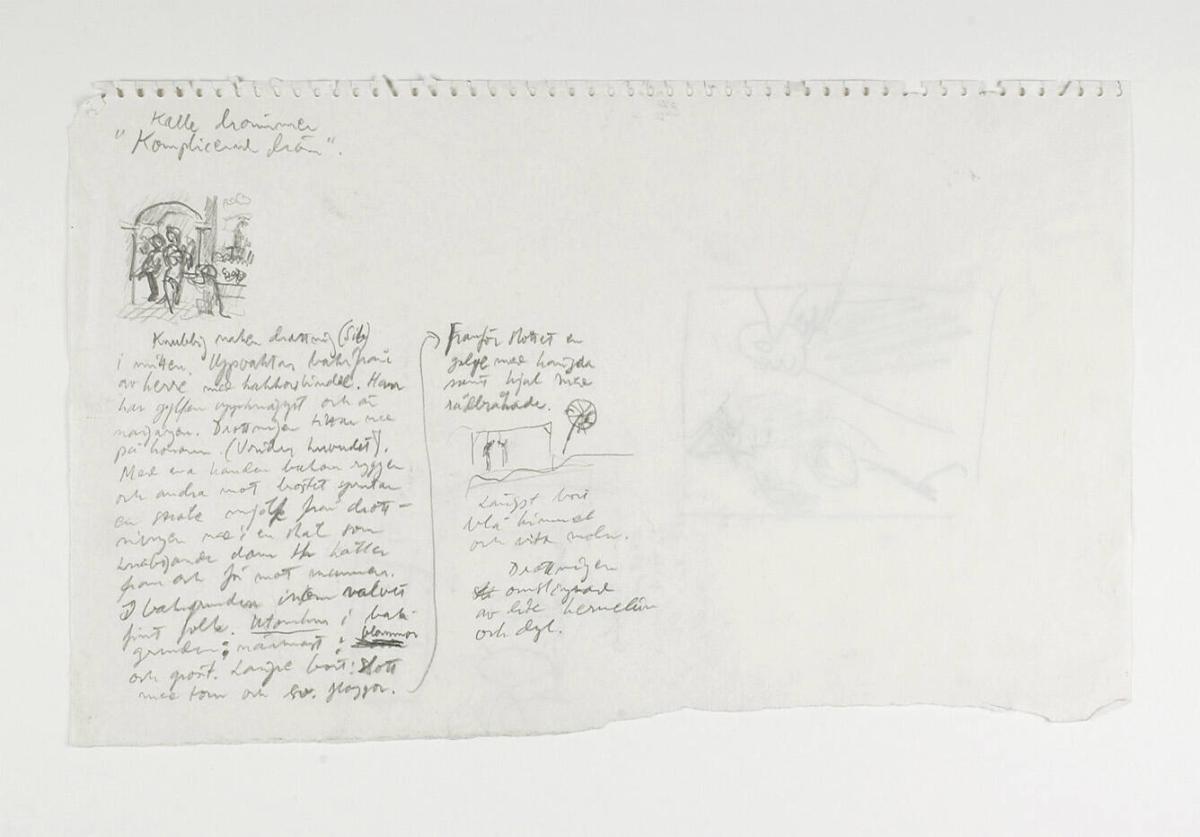 Kalle drömmer
"Komplicerad dröm".
Knubbig naken drottning (Sib)
i mitten. Uppvaktas bakifrån
av herre med hakkorsbindel. Han
har gylfen uppknäppt och är
Drottningen tittar med
på honom. (Vrider huvudet).
Med ena handen bakom ryggen
och andra mot bröstet sprutar
en stråle mjölk från drott-
ningen ned i en skål som
knäböjande dam håller
fram och på mot mannen.
I bakgrunden inom valvet
fint folk. Utomhus i bak-
grunden: närmast: blommor
och gräs. Längre bort: Slott
med torn och sv. flaggor.
Framför slottet en
galge med hängda
samt hjul med
rådbråkade.
Längst bort
blå himmel
och vita moln.
Drottningen
omslingrad
av lite hermelin
och dyl.